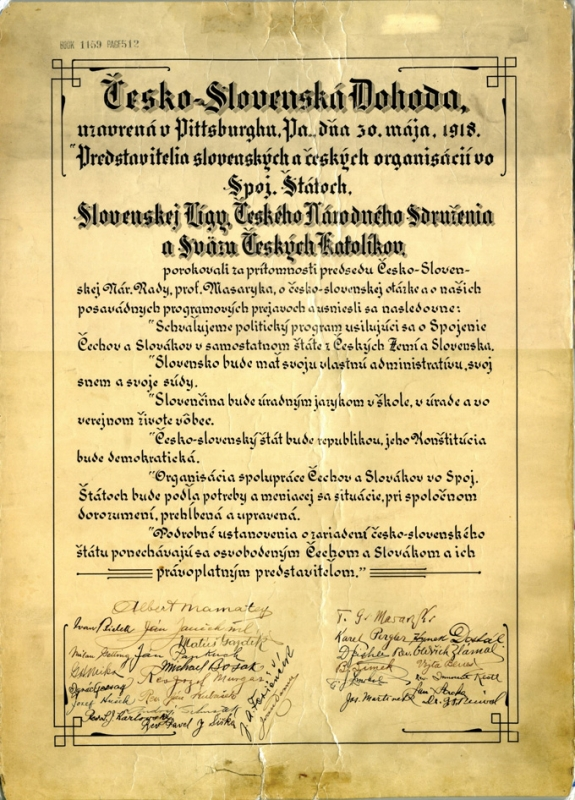 BOOK 1159 PAGE 512
Česko-Slovenská Dohoda,
uzavrená v Pittsburghu, Pa., dňa 30. mája, 1918.
"Predstavitelia slovenských a českých organisácií vo
Spoj. Štátoch,
Slovenskej Ligy, Českého Národného Sdruženia
a Sväzu Českých Katolíkov,
porokovali za prítomnosti predsedu Česko-Sloven-
skej Nár. Rady, prof. Masaryka, o česko-slovenskej otázke a o našich
posavádnych programových prejavoch a usniesli sa nasledovne:
"Schvaľujeme politický program usilujúci sa o Spojenie
Čechov a Slovákov v samostatnom štáte z Českých Zemí a Slovenska.
"Slovensko bude mať svoju vlastnú administratívu, svoj
snem a svoje súdy.
"Slovenčina bude úradným jazykom v škole, v úrade a vo
verejnom živote vôbec.
"Česko-slovenský štát bude republikou, jeho Konštitúcia
bude demokratická.
"Organisácia spolupráce Čechov a Slovákov vo Spoj.
Štátoch bude podľa potreby a meniacej sa situácie, pri spoločnom
dorozumení, prehĺbená a upravená.
"Podrobné ustanovenia o zariadení česko-slovenského
štátu ponechávajú sa osvobodeným Čechom a Slovákom a ich
právoplatným predstaviteľom."
Albert Mamatey
T. G. Masaryk
Ivan Bielek Ján Janček
Karel Pergler Hynek Dostál
Matúš Gazdík
Milan Getting Ján Pankúch
Rev. Oldřich Zlámal
Michael Bosák
Vojta Beneš
Rev. Joseph Murgaš
Jos. Martínek
Rev. Pavel J. Šiška